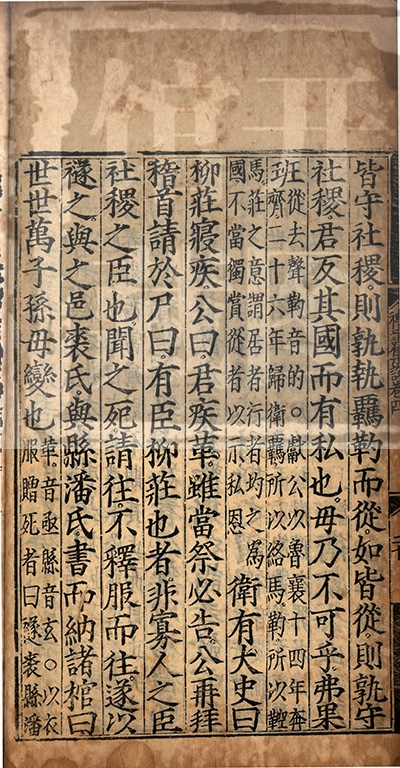 皆守社稷。則孰執羈勒而從。如皆從。則孰守
社稷。君反其國而有私也。毋乃不可乎。弗果
班從去聲勒音的○獻公以魯襄十四年奔
齊。二十六年歸衛羈所以絡馬。勒所以鞚
馬。莊之意謂居者行者均之為
國不當獨賞從者以示私恩
衛有大史曰
柳莊寢疾公曰。君疾革。雖當祭必告。公再拜
稽首請於尸曰。有臣柳莊也者。非寡人之臣
社稷之臣也。聞之死。請往。不釋服而往。遂以
襚之。與之邑裘氏。與縣潘氏。書而納諸棺。曰
世世萬子孫毋變也
革。音亟縣音玄。○以衣
服贈死者曰襚裘縣潘